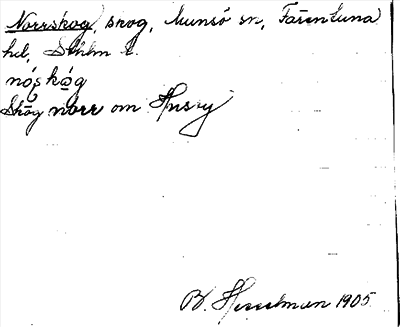 Norrskog, skog, Munsö sn, Färentuna
hd, Sthlm l.
nóskóg
Skog norr om Husby
B. Hesselman 1905